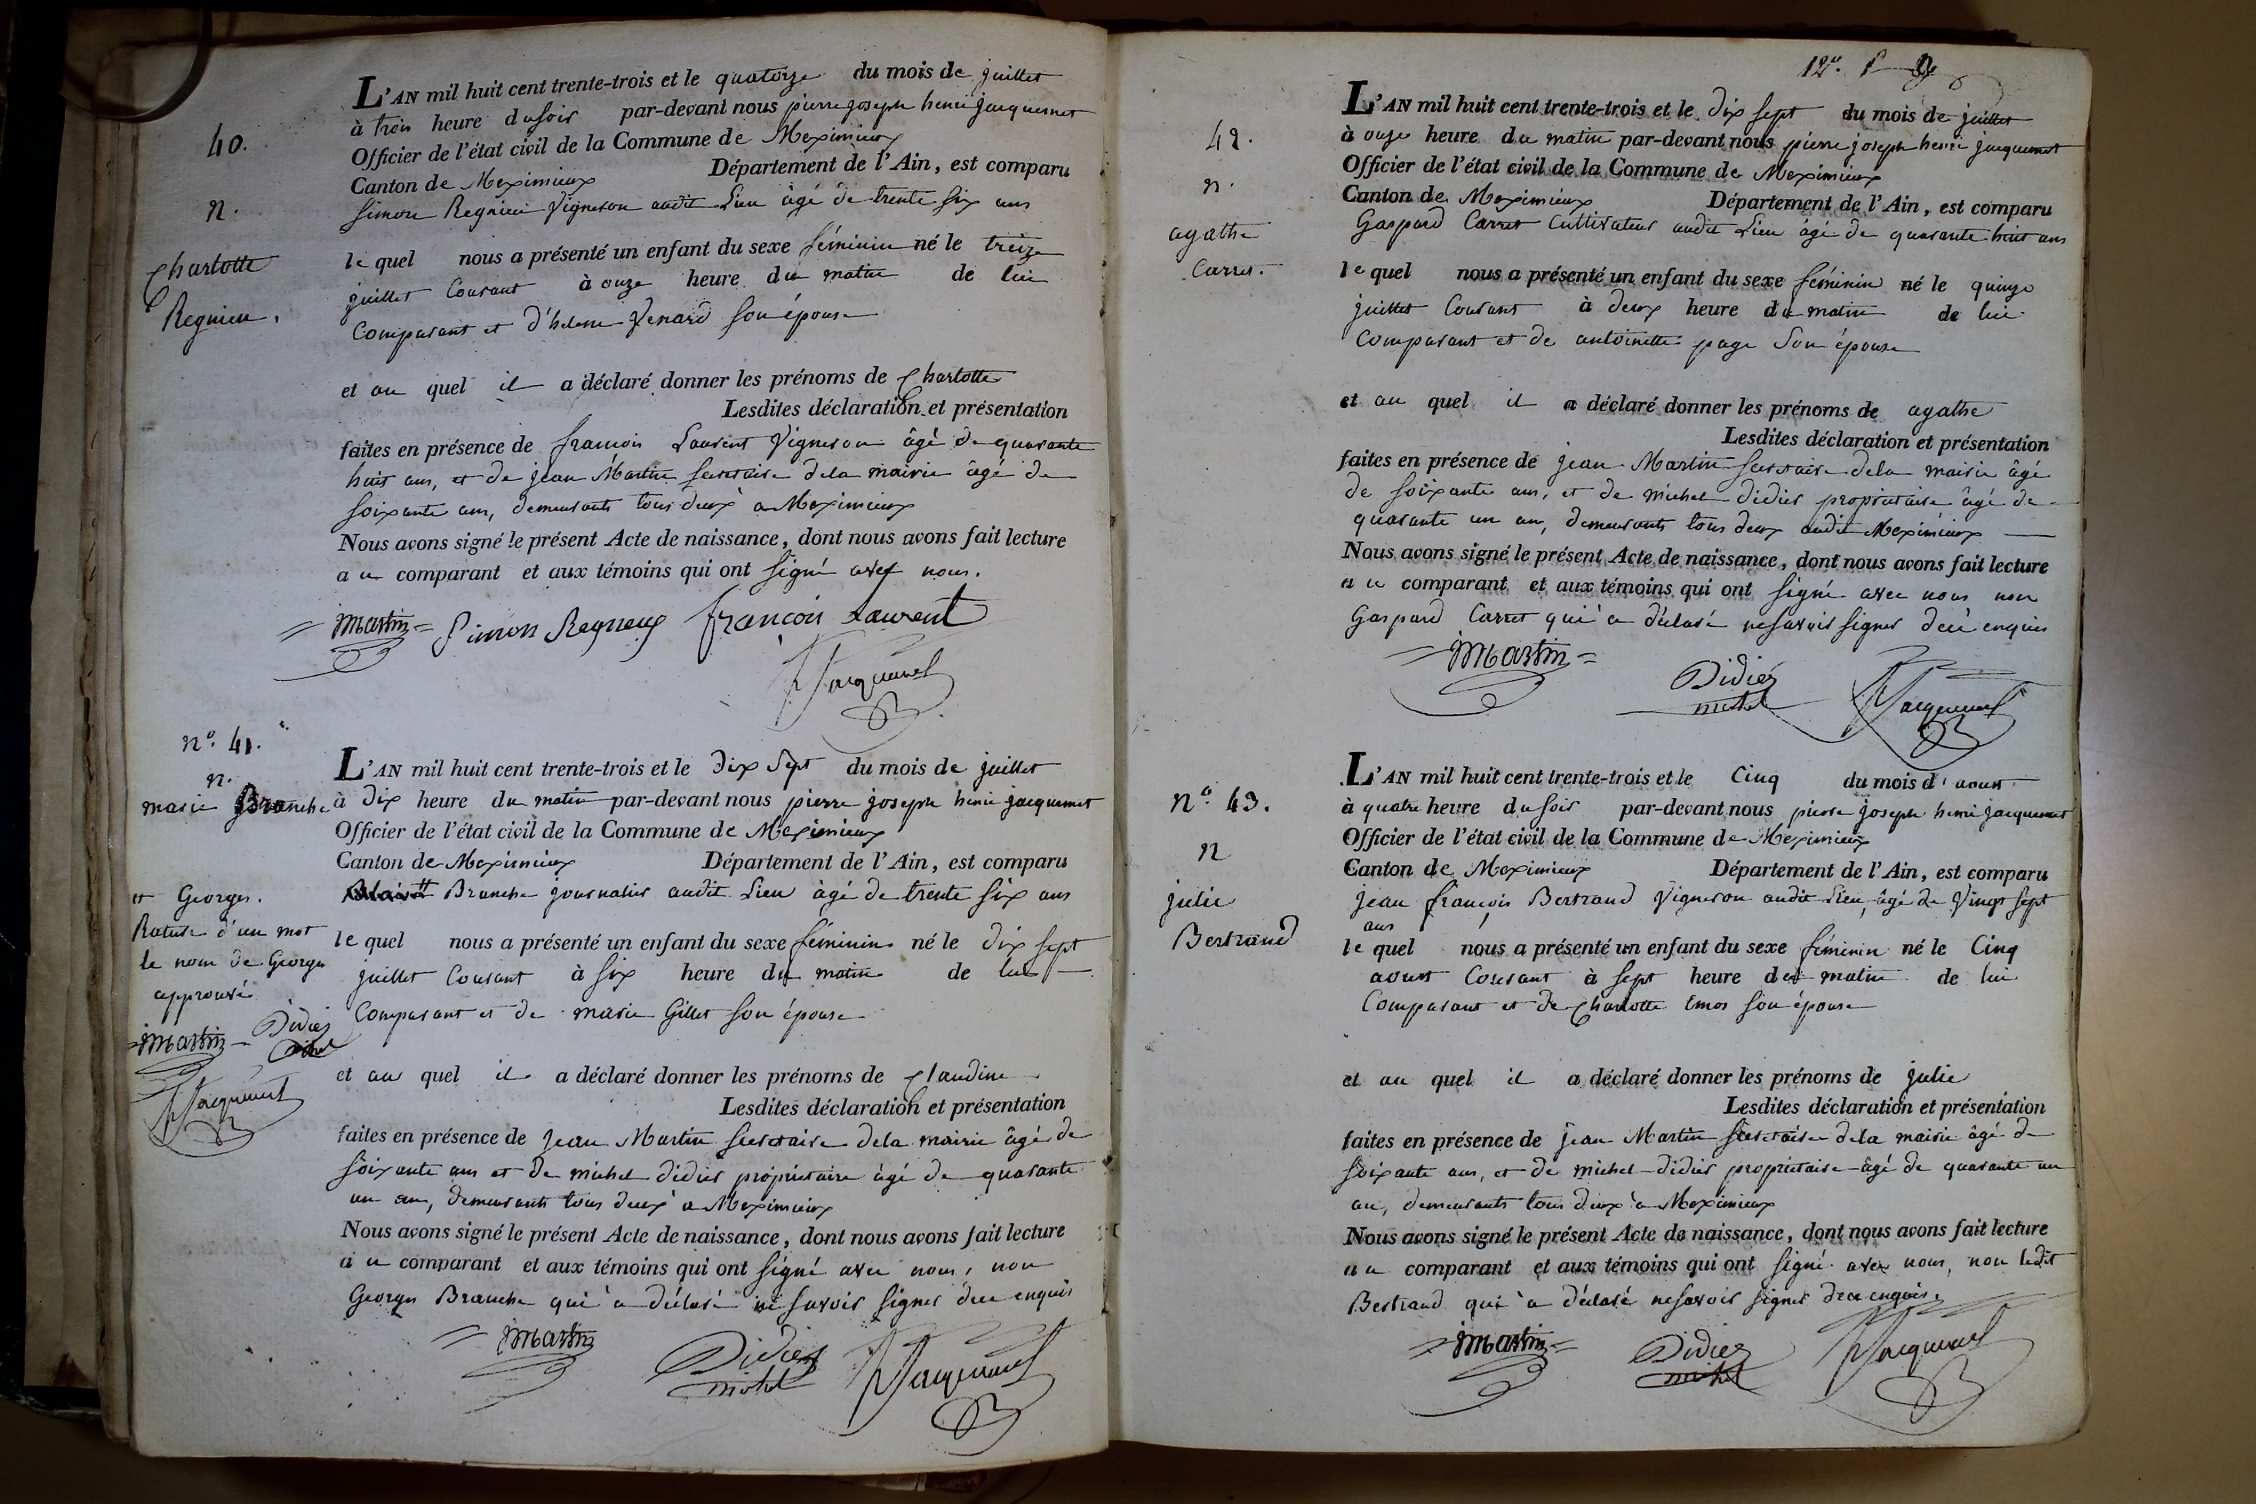 40.
n.
Charlotte
Regnieu.
L'AN mil huit cent trente-trois et le quatorze du mois de juillet
à trois heure du soir par-devant nous pierre joseph henri jacquemet
Officier de l'état civil de la Commune de Meximieux
Canton de Meximieux Département de l'Ain, est comparu
Simon Regnieu Vigneron audit Lieu âgé de trente six ans
le quel nous a présenté un enfant du sexe féminin né le treize
juillet Courant à onze heure du matin de lui
Comparant et d'helene Venard son épouse
et au quel il a déclaré donner les prénoms de Charlotte
Lesdites déclaration et présentation
faites en présence de françois Laurent Vigneron âgé de quarante
huit ans, et de jean Martin Secretaire dela mairie âgé de
soixante ans, demeurants tous deux à Meximieux
Nous avons signé le présent Acte de naissance, dont nous avons fait lecture
au comparant et aux témoins qui ont signé avec nous.
jmartin Simon Regneuy françois Laurent
Jacquemet
n.º 41.
n.
marie Branche
et Georges.
Rature d'un mot
le nom de Georges
approuvé
jmartin Didier
michel
Jacquemet
L'AN mil huit cent trente-trois et le Dix Sept du mois de juillet
à Dix heure du matin par-devant nous pierre joseph henri jacquemet
Officier de l'état civil de la Commune de Meximieux
Canton de Meximieux Département de l'Ain, est comparu
Branche journalier audit Lieu âgé de trente six ans
le quel nous a présenté un enfant du sexe féminin né le dix sept
juillet Courant à six heure du matin de lui
Comparant et de marie Gillet son épouse
et au quel il a déclaré donner les prénoms de Claudine
Lesdites déclaration et présentation
faites en présence de jean Martin Secretaire dela mairie âgé de
soixante ans et de michel didier propriétaire âgé de quarante
un ans, demeurants tous deux à Meximieux
Nous avons signé le présent Acte de naissance, dont nous avons fait lecture
au comparant et aux témoins qui ont signé avec nous, non
Georges Branche qui a déclaré ne savoir signer de ce enquis
jmartin Didier
michel Jacquemet
12e. f
42.
n.
agathe
Carret.
L'AN mil huit cent trente-trois et le Dix sept du mois de juillet
à onze heure du matin par-devant nous pierre joseph henri jacquemet
Officier de l'état civil de la Commune de Meximieux
Canton de Meximieux Département de l'Ain, est comparu
Gaspard Carret Cultivateur audit Lieu âgé de quarante huit ans
le quel nous a présenté un enfant du sexe féminin né le quinze
juillet Courant à deux heure du matin de lui
Comparant et de antoinette page son épouse
et au quel il a déclaré donner les prénoms de agathe
Lesdites déclaration et présentation
faites en présence de jean Martin Secretaire dela mairie âgé
de soixante ans, et de michel didier propriétaire âgé de
quarante un ans, demeurants tous deux audit Meximieux
Nous avons signé le présent Acte de naissance, dont nous avons fait lecture
au comparant et aux témoins qui ont signé avec nous non
Gaspard Carret qui a déclaré ne savoir signer de ce enquis
jmartin Didier
michel Jacquemet
n.º 43.
n
julie
Bertrand
L'AN mil huit cent trente-trois et le Cinq du mois d'aoust
à quatre heure du soir par-devant nous pierre joseph henri jacquemet
Officier de l'état civil de la Commune de Meximieux
Canton de Meximieux Département de l'Ain, est comparu
jean françois Bertrand Vigneron audit Lieu, âgé de Vingt sept
ans
le quel nous a présenté un enfant du sexe féminin né le Cinq
aoust Courant à sept heure du matin de lui
Comparant et de Charlotte Emos son épouse
et au quel il a déclaré donner les prénoms de julie
Lesdites déclaration et présentation
faites en présence de jean Martin Secretaire dela mairie âgé de
soixante ans, et de michel didier propriétaire âgé de quarante un
an, demeurants tous deux à Meximieux
Nous avons signé le présent Acte de naissance, dont nous avons fait lecture
au comparant et aux témoins qui ont signé avec nous, non ledit
Bertrand qui a déclaré ne savoir signer de ce enquis.
jmartin Didier
michel Jacquemet